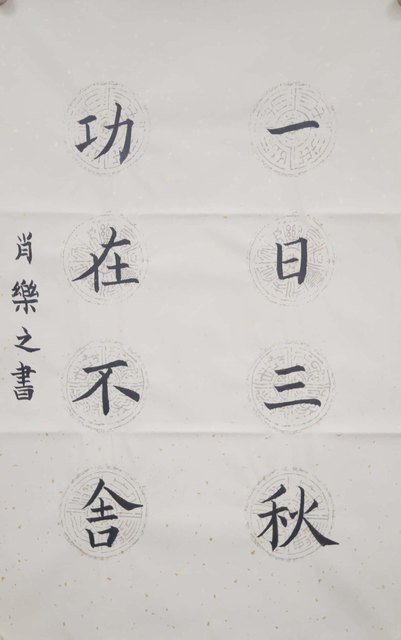 一日三秋
功在不舍
肖樂之書